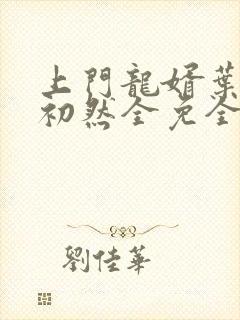 上門龍婿葉
初然全免全
劉佳華